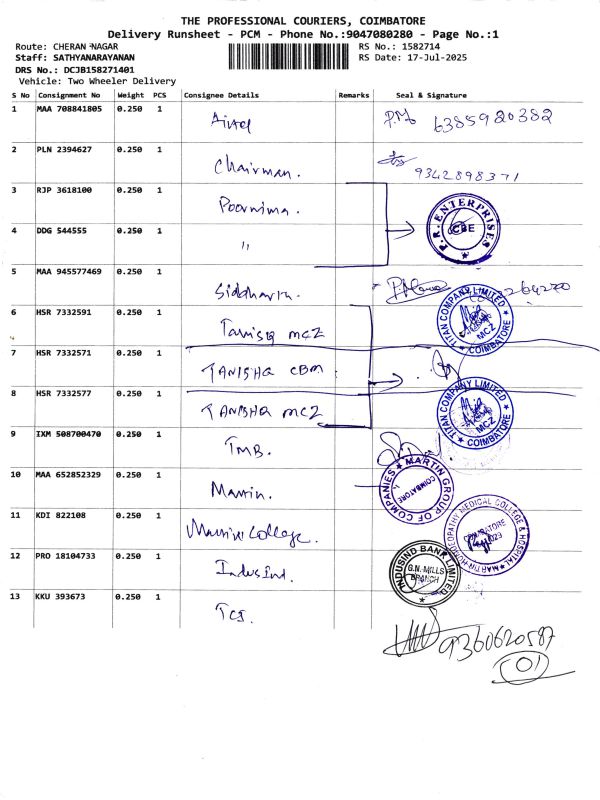 THE PROFESSIONAL COURIERS, COIMBATORE
Delivery Runsheet - PCM - Phone No.:9047080280 - Page No.:1
Route: CHERAN NAGAR
RS No.: 1582714
Staff: SATHYANARAYANAN
RS Date: 17-Jul-2025
DRS No.: DCJB158271401
Vehicle: Two Wheeler Delivery
S No Consignment No Weight PCS Consignee Details Remarks Seal & Signature
1 MAA 708841805 0.250 1 Airtel 6385920382
2 PLN 2394627 0.250 1 Chairman. 9342898371
3 RJP 3618100 0.250 1 Poornima.
4 DDG 544555 0.250 1 "
P.R. ENTERPRISES
CBE
5 MAA 945577469 0.250 1 Siddharth.
6 HSR 7332591 0.250 1 Tanisq MCZ
TITAN COMPANY LIMITED
MCZ
COIMBATORE
7 HSR 7332571 0.250 1 TANISHQ CBM.
8 HSR 7332577 0.250 1 TANISHQ MCZ
TITAN COMPANY LIMITED
MCZ
COIMBATORE
9 IXM 508700470 0.250 1 TMB.
10 MAA 652852329 0.250 1 Martin.
MARTIN GROUP OF COMPANIES
COIMBATORE
11 KDI 822108 0.250 1 Martin College.
MARTIN HOMOEOPATHY MEDICAL COLLEGE & HOSPITAL
COIMBATORE
12 PRO 18104733 0.250 1 IndusInd.
INDUSIND BANK LIMITED
G.N. MILLS
BRANCH
13 KKU 393673 0.250 1 TCI.
9360620587
01